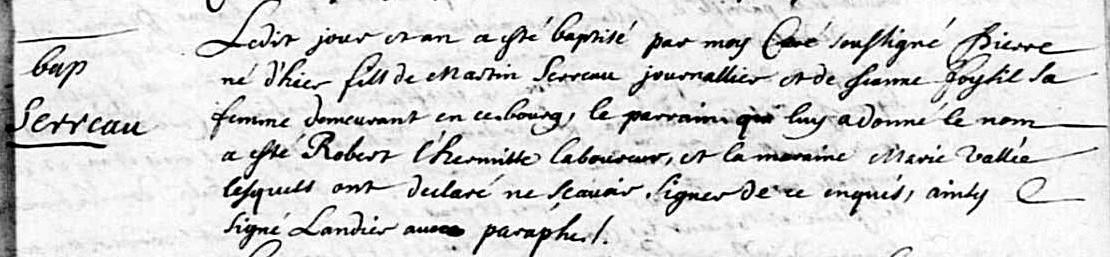 bap
Serreau
Ledit jour et an a esté baptisé par moy Curé soussigné Pierre
né d'hier fills de Martin Serreau journallier et de Jeanne Foysil sa
femme demeurant en ce bourg, le parrain qui luy a donné le nom
a esté Robert l'hermitte laboureur, et la maraine Marie Vallée
lesquels ont declaré ne scavoir signer de ce enquis, ainsy
signé Landier avec paraphe /.